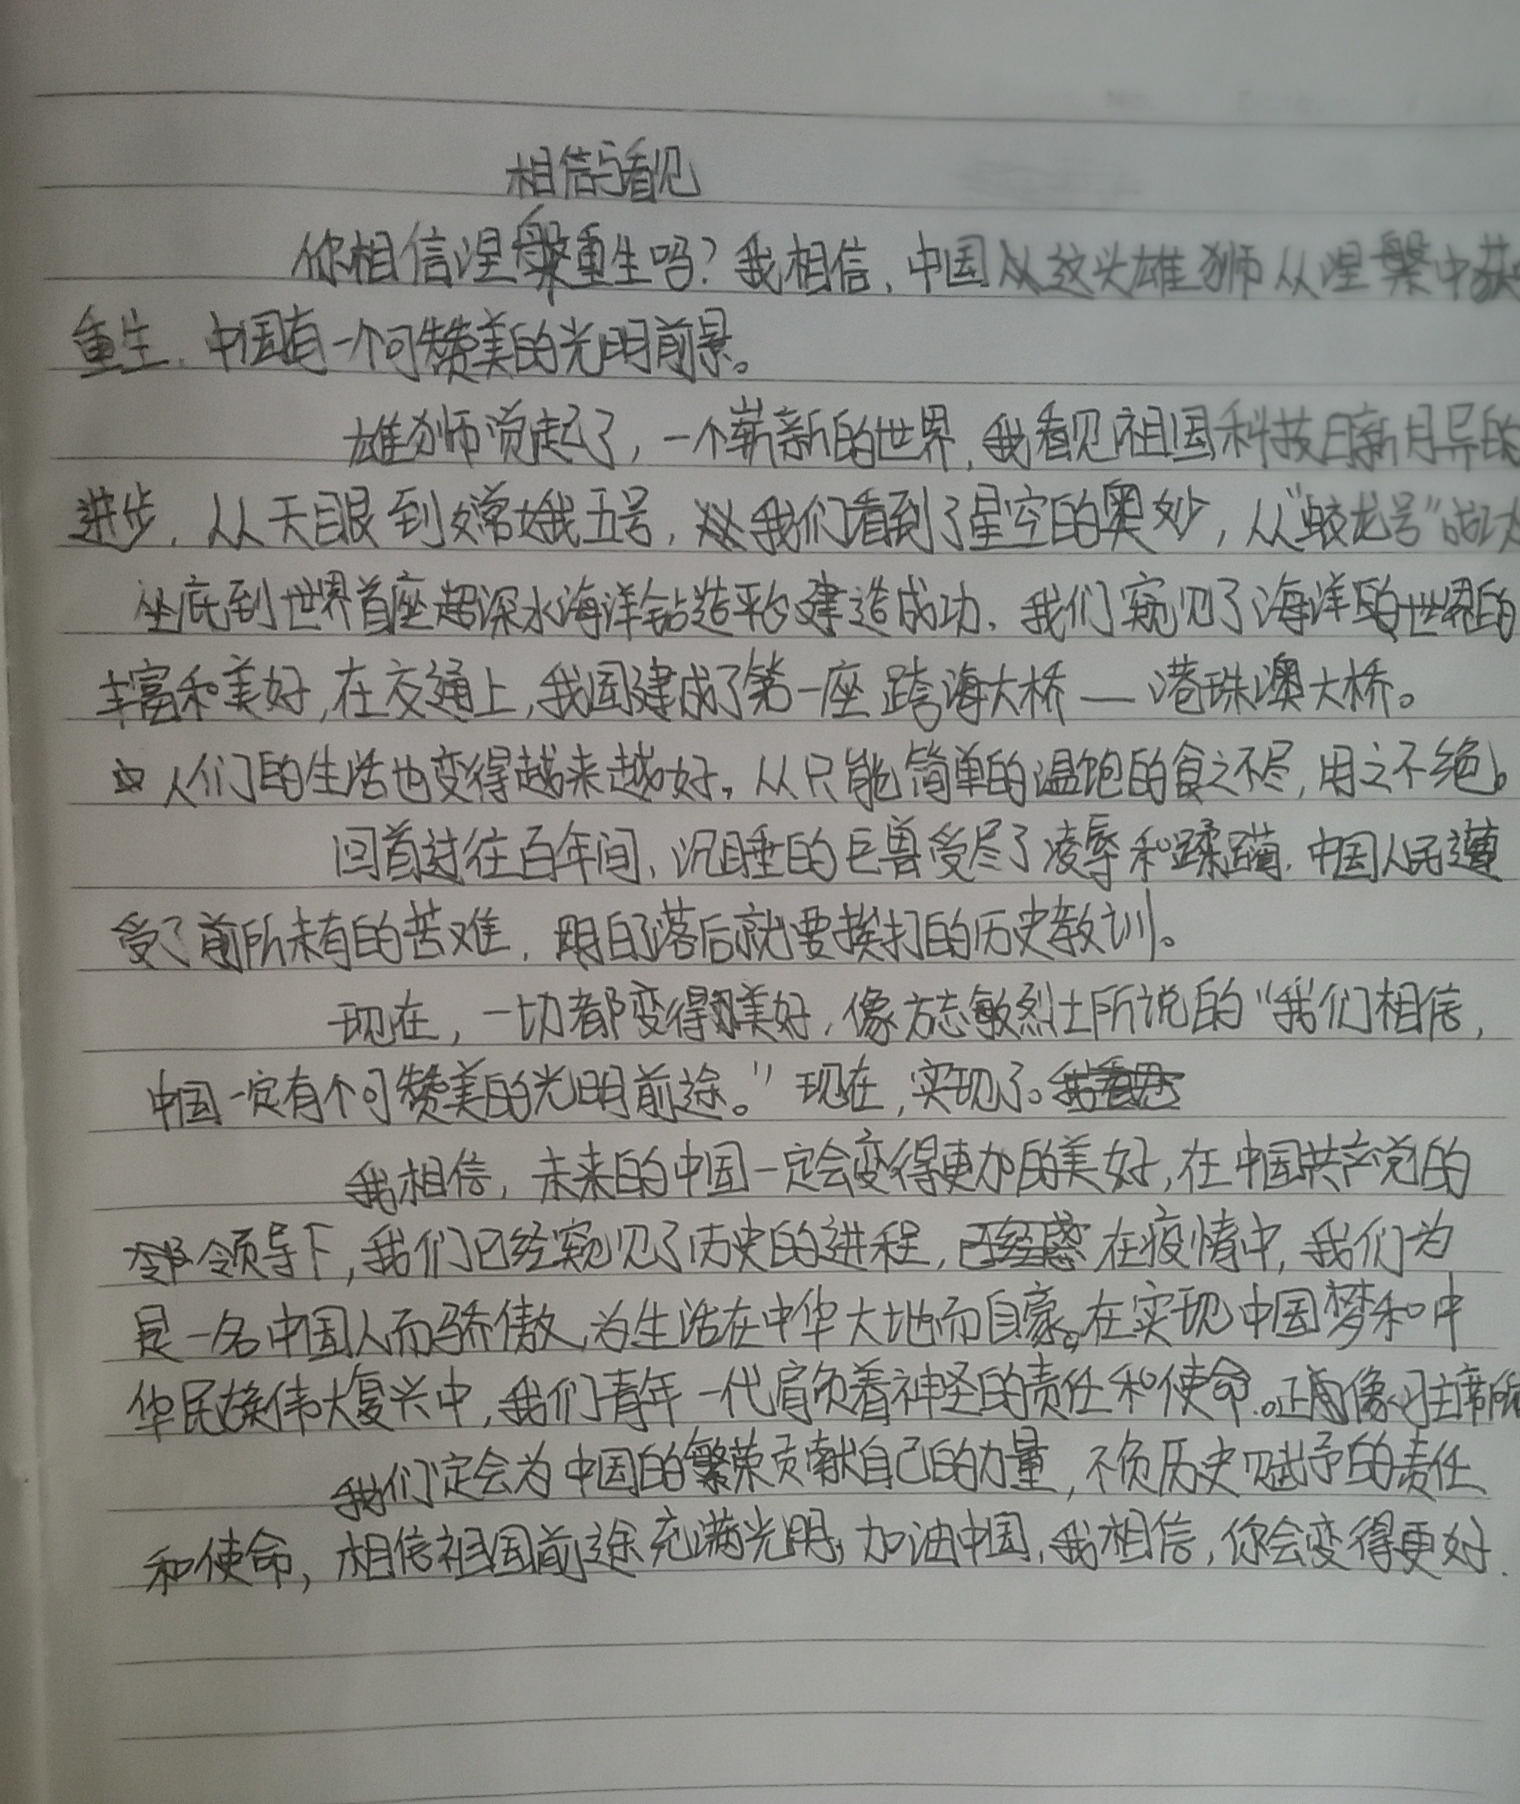 相信与看见
你相信涅槃重生吗？我相信，中国这头雄狮从涅槃中获
重生，中国有一个可赞美的光明前景。
雄狮觉起了，一个崭新的世界，我看见祖国科技日新月异的
进步，从天眼到嫦娥五号，我们看到了星空的奥妙，从“蛟龙号”成功
坐底到世界首座超深水海洋钻造平台建造成功，我们窥见了海洋的世界的
丰富和美好，在交通上，我国建成了第一座跨海大桥—港珠澳大桥。
人们的生活也变得越来越好，从只能简单的温饱的食之不尽，用之不绝。
回首过往百年间，沉睡的巨兽受尽了凌辱和蹂躏，中国人民遭
受了前所未有的苦难，明白了落后就要挨打的历史教训。
现在，一切都变得美好，像方志敏烈士所说的“我们相信，
中国一定有个可赞美的光明前途。”现在，实现了。
我相信，未来的中国一定会变得更加的美好，在中国共产党的
领导下，我们已经窥见了历史的进程，在疫情中，我们为
是一名中国人而骄傲，为生活在中华大地而自豪。在实现中国梦和中
华民族伟大复兴中，我们青年一代肩负着神圣的责任和使命。正像习主席所
我们定会为中国的繁荣贡献自己的力量，不负历史赋予的责任
和使命，相信祖国前途充满光明，加油中国，我相信，你会变得更好.